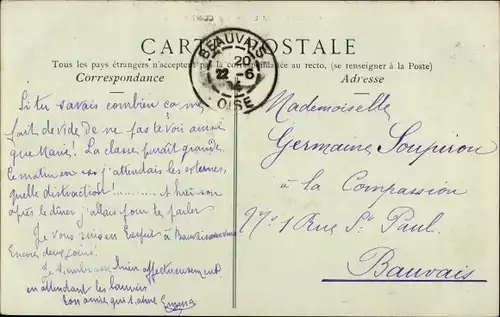 CARTE POSTALE
Tous les pays étrangers n'acceptent pas la correspondance au recto, (se renseigner à la Poste)
Correspondance
Adresse
BEAUVAIS
20
22 - 6
OISE
Si tu savais combien ça me
fait de vide de ne pas te voir ainsi
que Marie! La classe paraît grande.
Ce matin j'attendais les externes,
quelle distraction! ........ et hier soir
après le dîner j'allais pour te parler
Je vous suis en Esprit à
Encore deux jours!
Je t'embrasse bien affectueusement
en attendant les lauriers
ton amie qui t'aime Emma
Mademoiselle
Germaine Soupiron
à la Compassion
No 1 Rue St Paul.
Bauvais